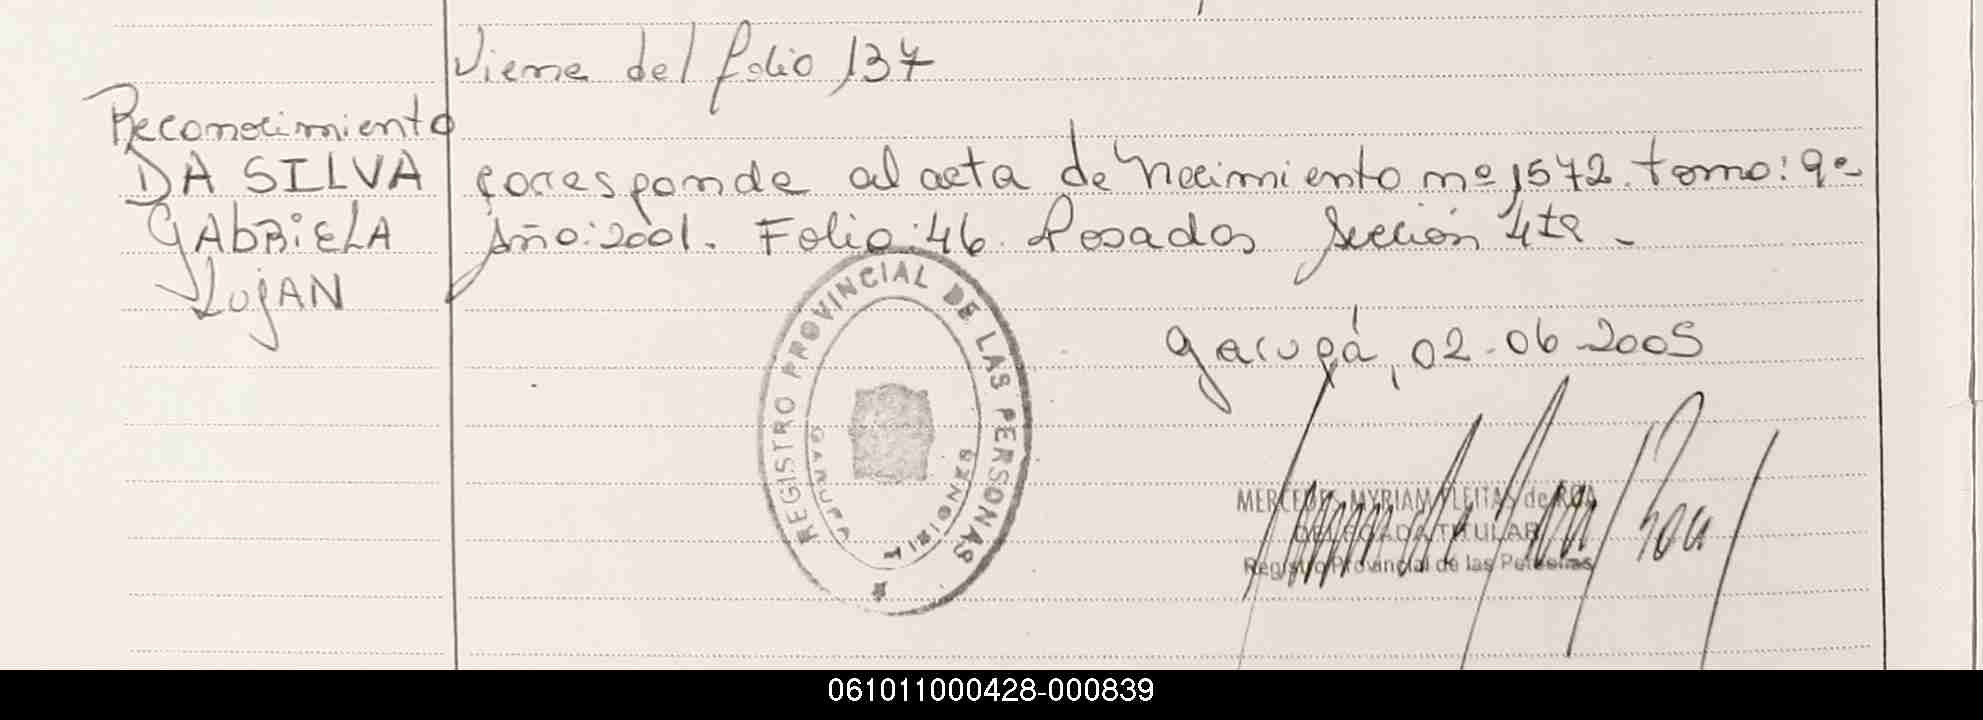 Viene del folio 137
Reconocimiento
DA SILVA
GAbRiELA
LujAN
corresponde al acta de Nacimiento nº 1572. tomo: 9º-
Año: 2001. Folio: 46. Posadas Sección 4ta -
REGISTRO PROVINCIAL DE LAS PERSONAS
GARUPA
MISIONES
Garupá, 02-06-2005
MERCEDES MYRIAM FLEITAS de ROA
DELEGADA TITULAR
Registro Provincial de las Personas
061011000428-000839